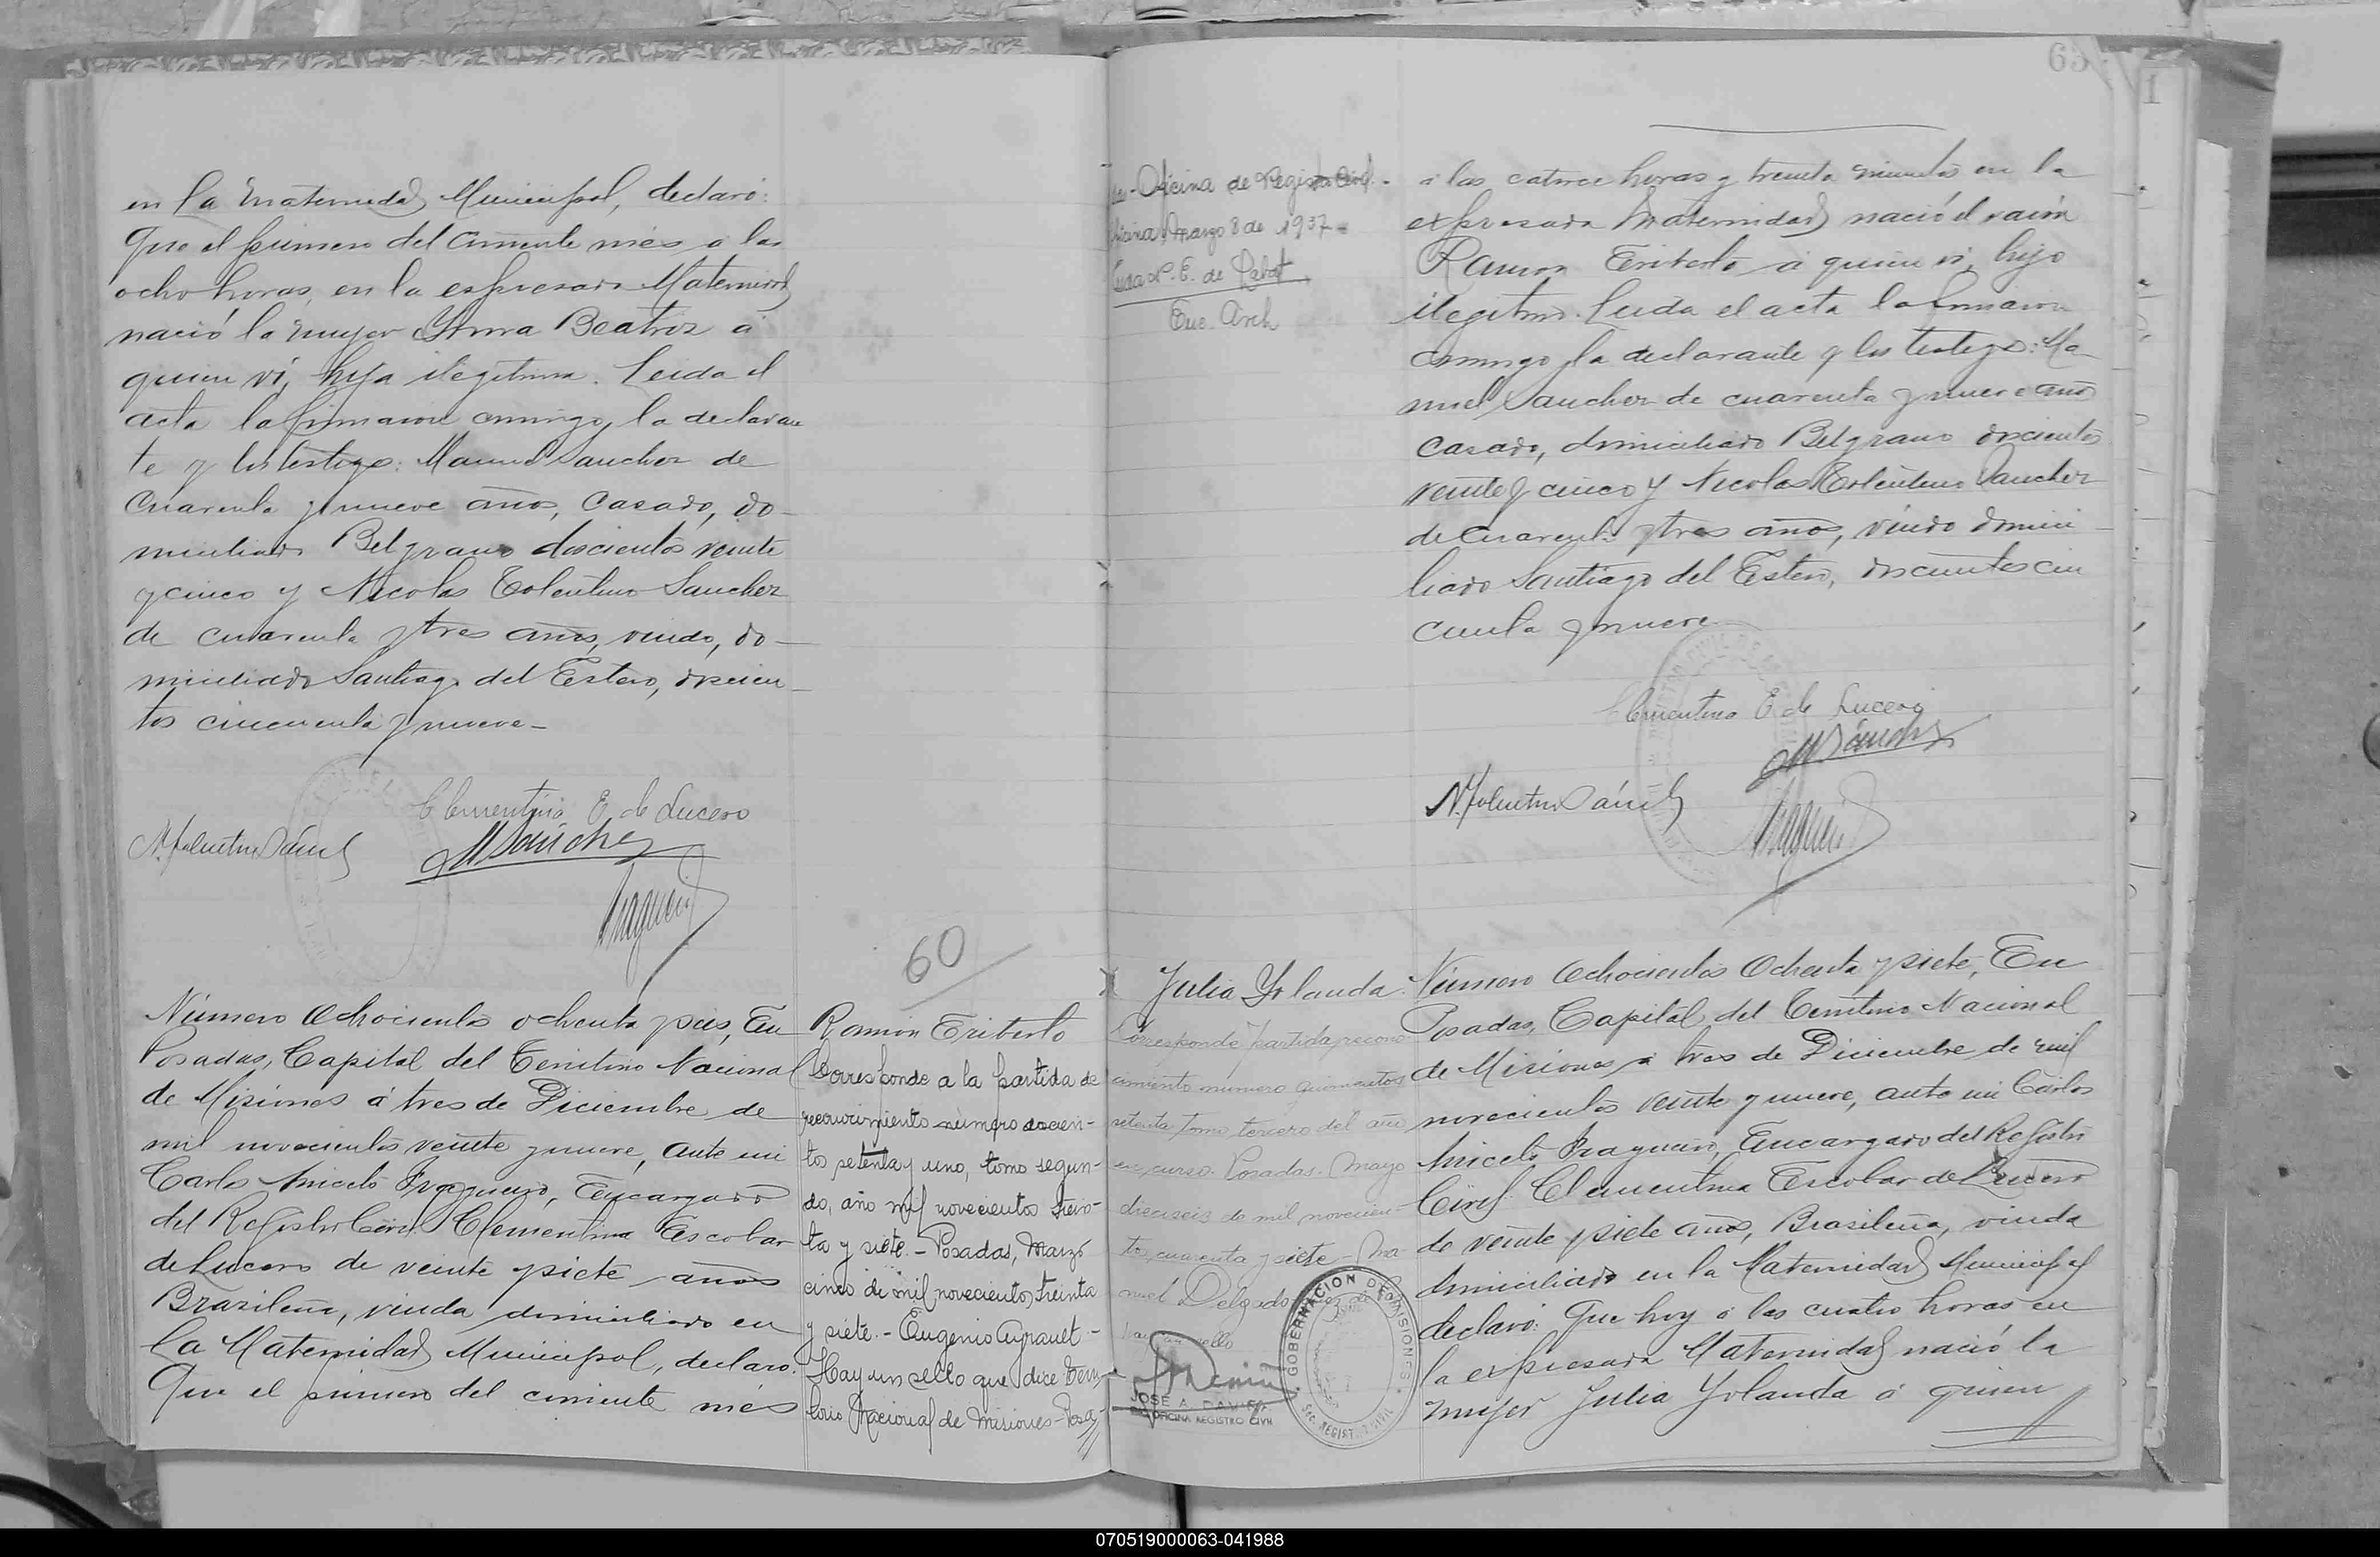 en la Maternidad Municipal, declaró:
Que el primero del corriente més a las
ocho horas, en la expresada Maternidad
nació la mujer Irma Beatriz a
quien ví, hija ilegitima. Leida el
acta la firmaron conmigo, la declaran
te y los testigos: Manuel Sanchez de
cuarenta y nueve años, casado, do-
miciliado Belgrano doscientos veinte
y cinco y Nicolas Tolentino Sanchez
de cuarenta y tres años, viudo, do-
miciliado Santiago del Estero, doscien-
tos cincuenta y nueve-
Clementina E de Lucero
N. Tolentino Sánchez
M Sánchez
60
Número Ochocientos ochenta y seis, En
Posadas, Capital del Territorio Nacional
de Misiones á tres de Diciembre de
mil novecientos veinte y nueve, ante mi
Carlos Aniceto Fragueiro, Encargado
del Registro Civil Clementina Escobar
de Lucero de veinte y siete años
Brasileña, viuda domiciliado en
la Maternidad Municipal, declaro:
Que el primero del corriente més
Ramón Eriberto
Corresponde a la partida de
reconocimiento número doscien-
tos setenta y uno, tomo segun-
do, año mil novecientos trein-
ta y siete.- Posadas, Marzo
cinco de mil novecientos treinta
y siete.- Eugenio Ayrault-
Hay un sello que dice Terri-
torio Nacional de Misiones-Posa-
65
das-Oficina de Registro Civil.-
Marzo 8 de 1937-
E. de Labat
Enc. Arch
á las catorce horas y treinta minutos en la
expresada Maternidad nació el varón
Ramon Eriberto á quien vi, hijo
ilegitimo. Leida el acta la firmaron
conmigo, la declarante y los testigos: Ma-
nuel Sanchez de cuarenta y nueve años
casado, domiciliado Belgrano doscientos
veinte y cinco y Nicolas Tolentino Sanchez
de cuarenta y tres años, viudo domici-
liado Santiago del Estero, doscientos cin
cuenta y nueve
Clementina E de Lucero
M Sánchez
N. Tolentino Sánchez
Julia Yolanda
Corresponde partida recono-
cimiento numero quinientos
setenta tomo tercero del año
en curso. Posadas. Mayo
dieciseis de mil novecien-
tos cuarenta y siete - Ma-
nuel Delgado
Hay un sello
JOSÉ A.
OFICINA REGISTRO CIVIL
GOBERNACION DE MISIONES
SEC. REGISTRO CIVIL
Número Ochocientos Ochenta y siete, En
Posadas, Capital del Territorio Nacional
de Misiones a tres de Diciembre de mil
novecientos veinte y nueve, ante mi Carlos
Aniceto Fragueiro, Encargado del Registro
Civil Clementina Escobar de Lucero
de veinte y siete años, Brasileña, viuda
domiciliado en la Maternidad Municipal
declaró: Que hoy á las cuatro horas en
la expresada Maternidad nació la
mujer Julia Yolanda á quien
070519000063-041988